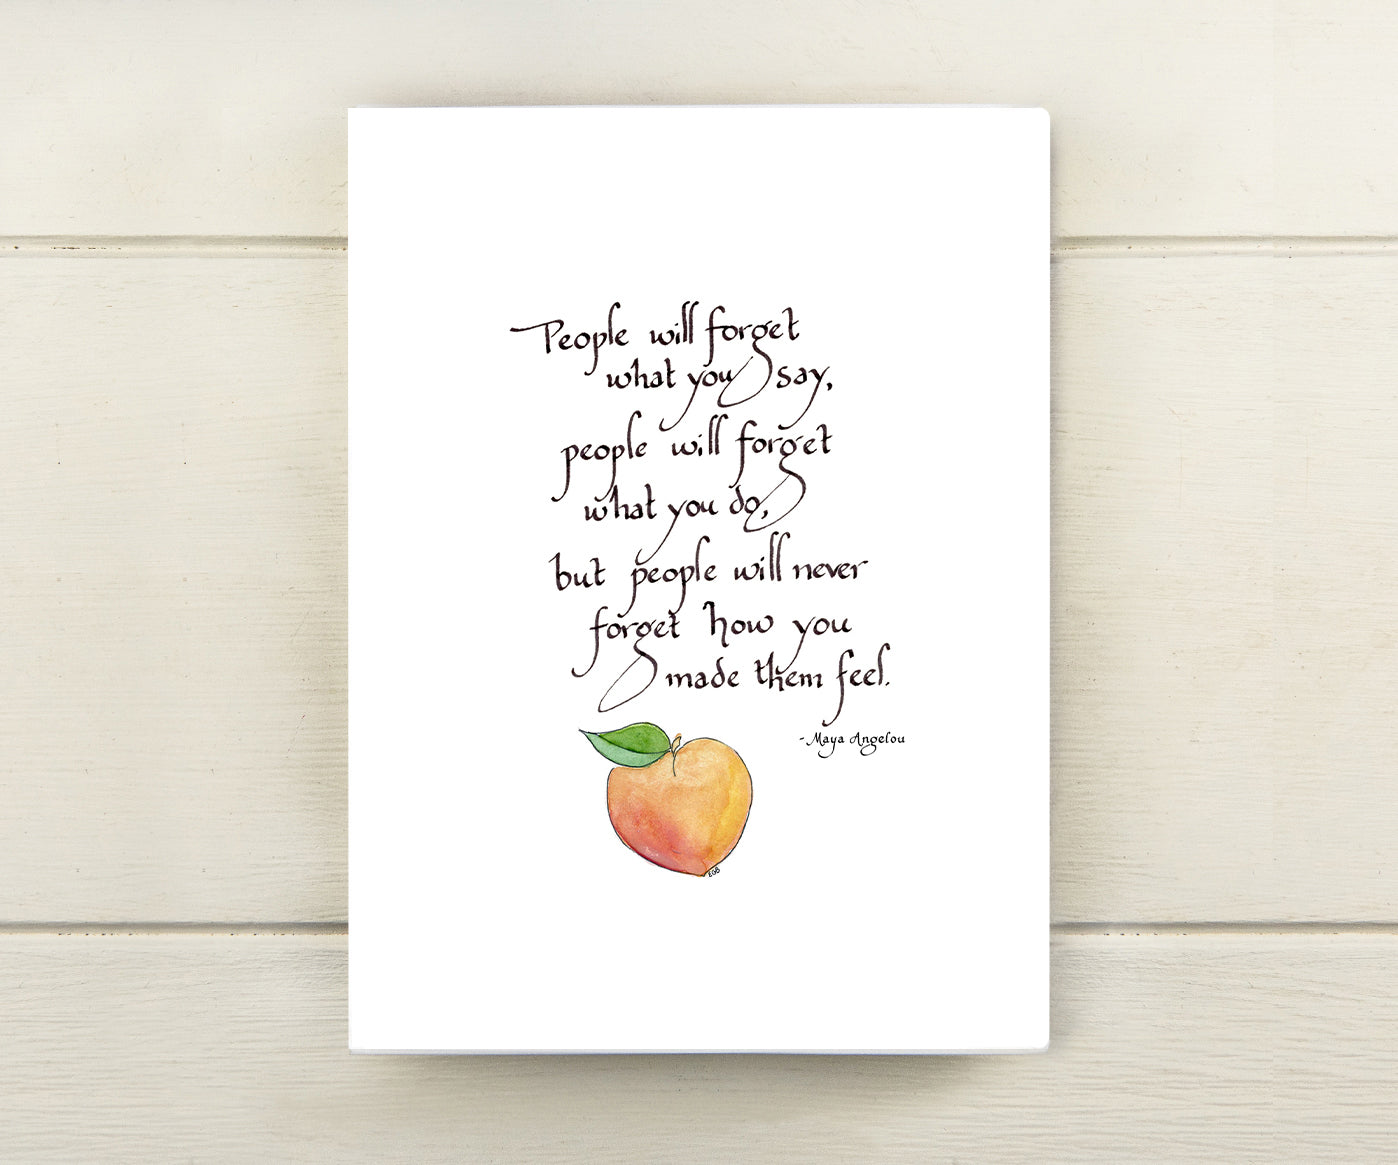 People will forget
what you say,
people will forget
what you do,
but people will never
forget how you
made them feel.
- Maya Angelou
EGB